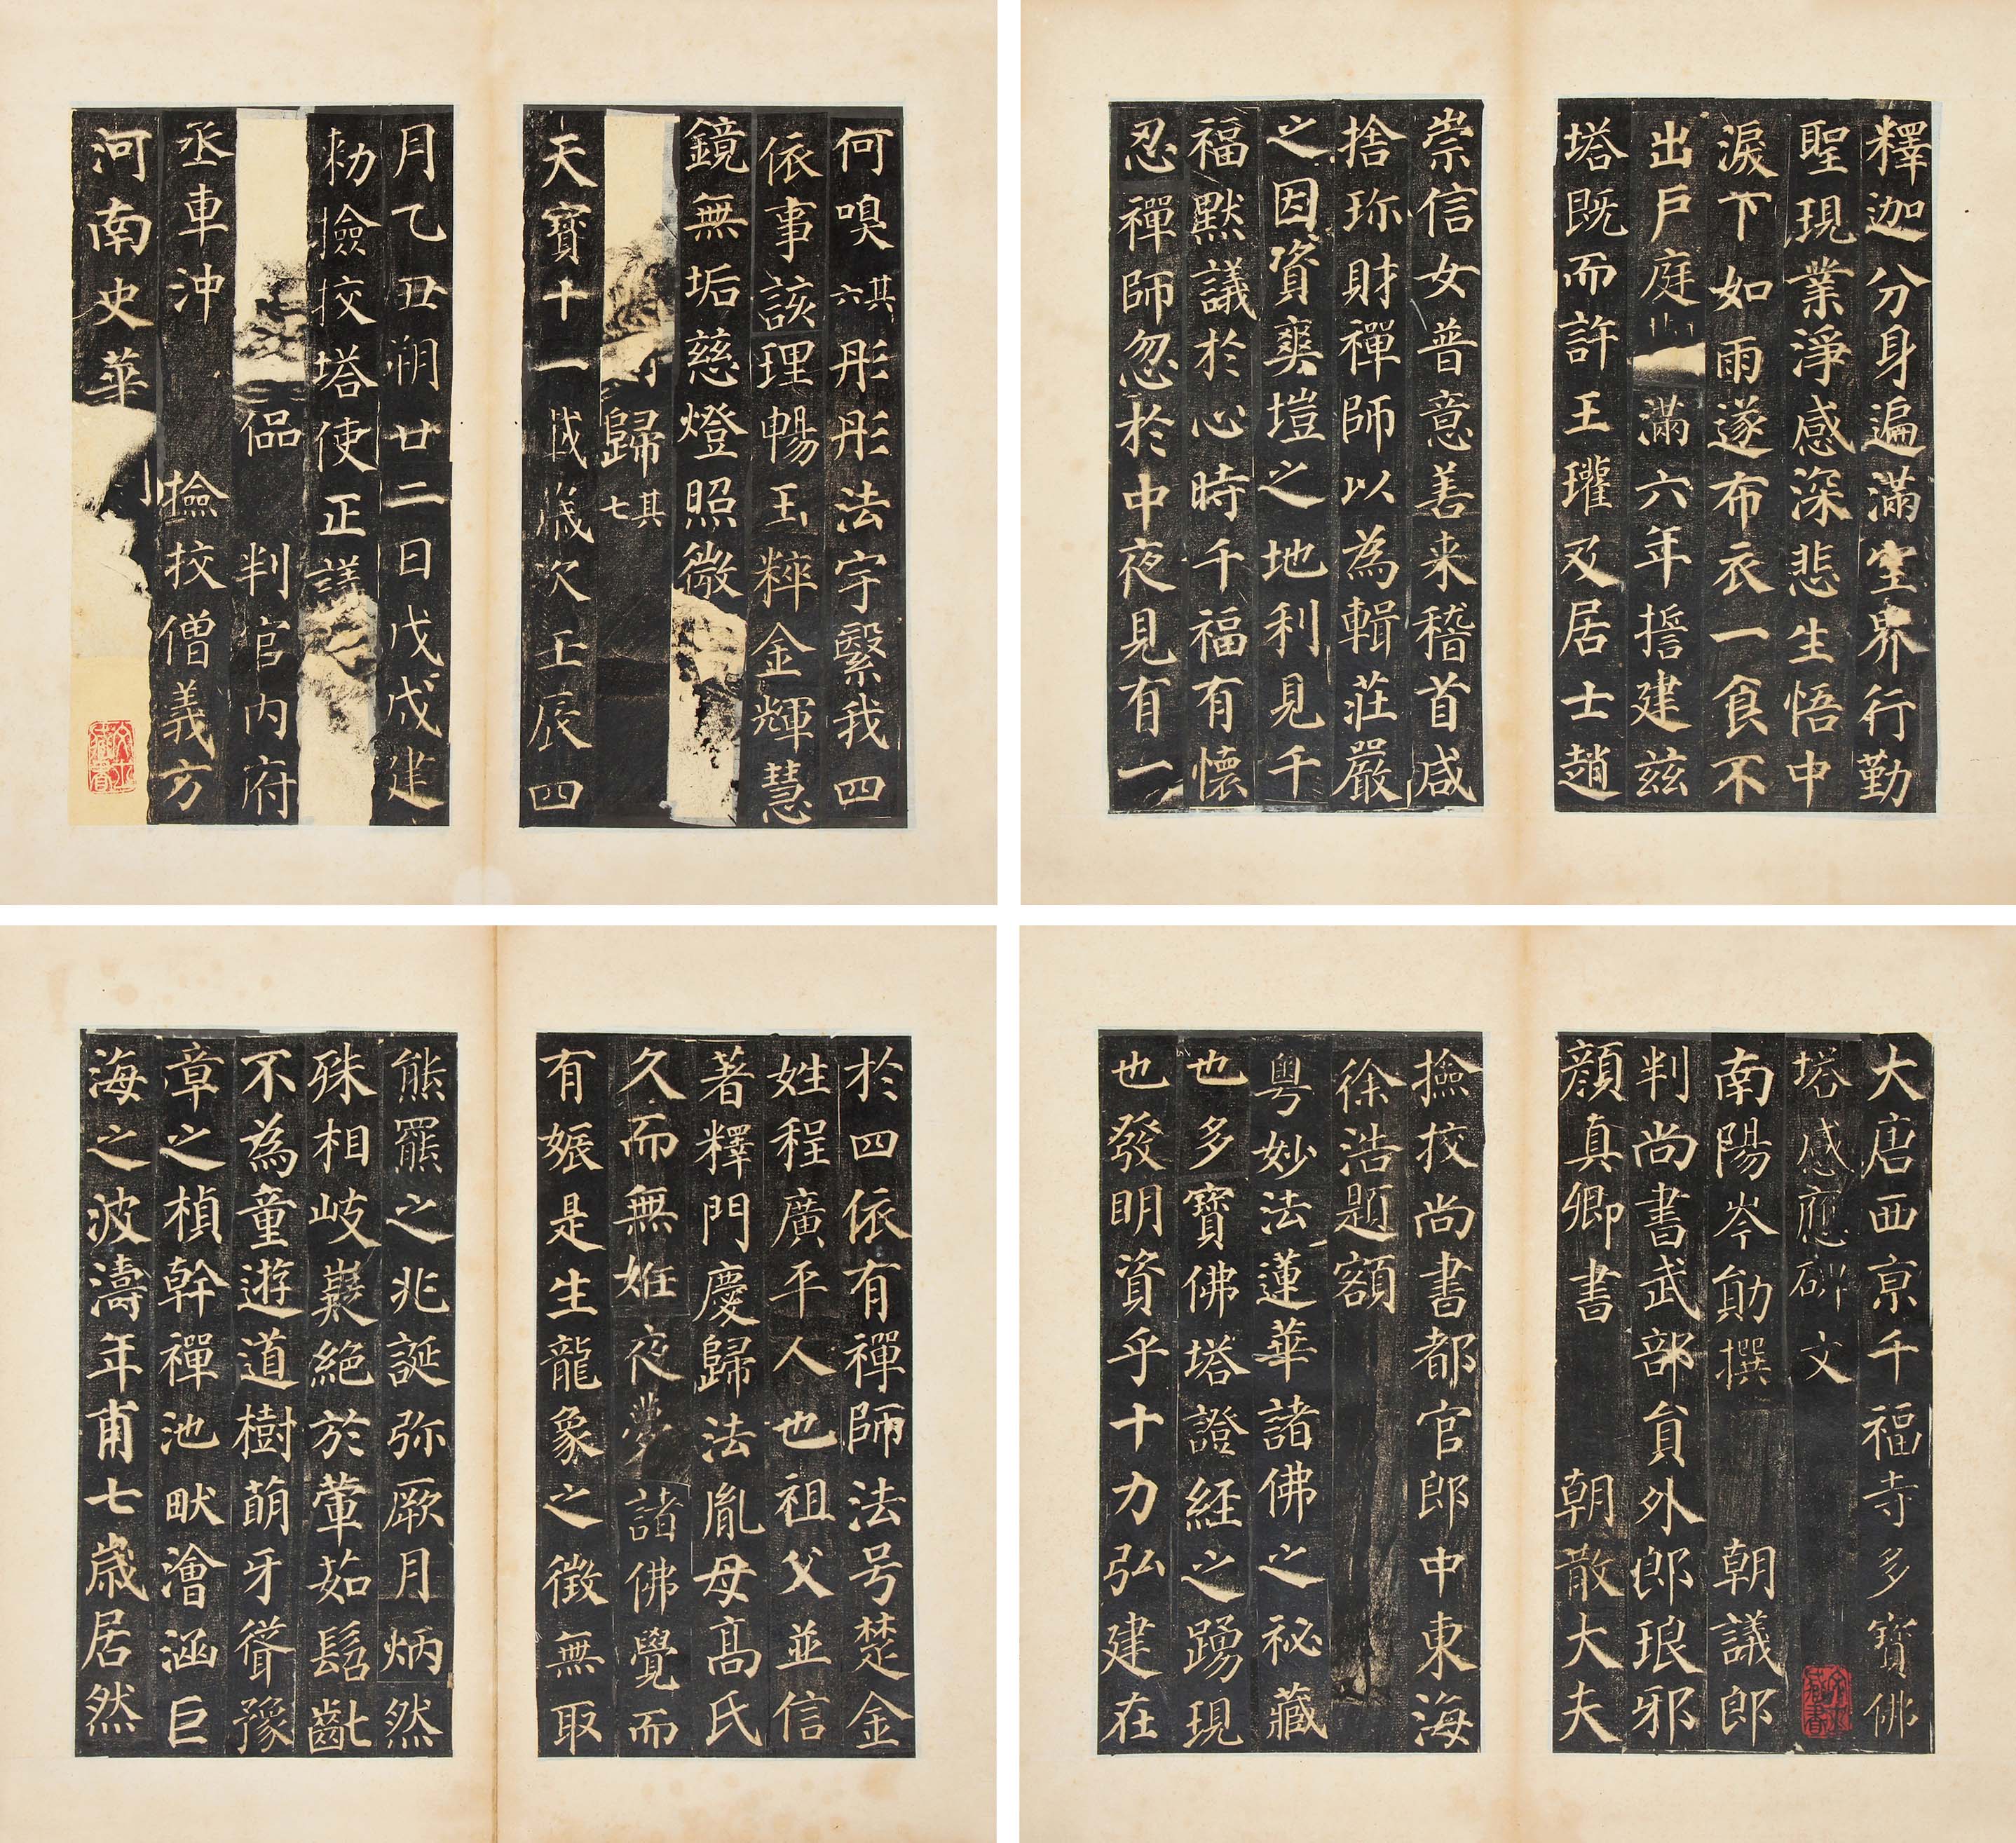 釋迦分身遍滿空界行勤
聖現業淨感深悲生悟中
淚下如雨遂布衣一食不
出戶庭滿六年誓建茲
塔既而許王瓘及居士趙
崇信女普意善来稽首咸
捨珎財禪師以為輯莊嚴
之因資爽塏之地利見千
福默議於心時千福有懷
忍禪師忽於中夜見有一
何嗅其六彤彤法宇繄我四
依事該理暢玉粹金輝慧
鏡無垢慈燈照微
歸其七
天寶十一載歲次壬辰四
月乙丑朔廿二日戊戌建
勑撿挍塔使正議
判官内府
丞車沖 撿挍僧義方
河南史華
大唐西京千福寺多寶佛
塔感應碑文
南陽岑勛撰 朝議郎
判尚書武部員外郎琅邪
顏真卿書 朝散大夫
撿挍尚書都官郎中東海
徐浩題額
粵妙法蓮華諸佛之祕藏
也多寶佛塔證經之踴現
也發明資乎十力弘建在
於四依有禪師法号楚金
姓程廣平人也祖父並信
著釋門慶歸法胤母高氏
久而無姙夜夢諸佛覺而
有娠是生龍象之徵無取
熊羆之兆誕弥厥月炳然
殊相岐嶷絕於葷茹髫齓
不為童遊道樹萌牙聳豫
章之楨幹禪池畎澮涵巨
海之波濤年甫七歲居然